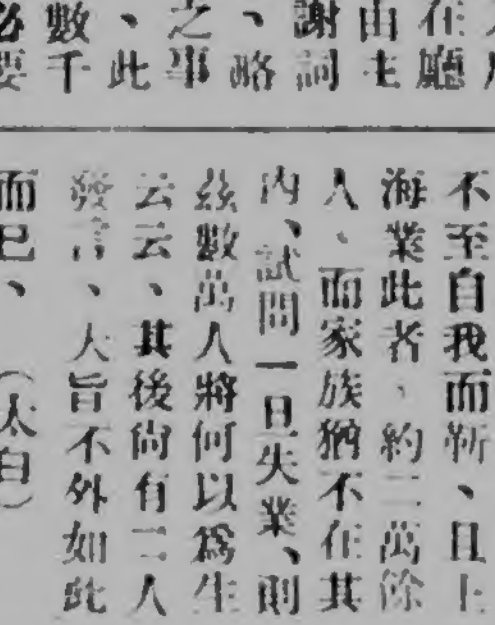 在廳
由主
謝詞
、略
之事
、此
數千
必要
不至自我而斬、且上
海業此者、約二萬餘
人、而家族猶不在其
內、試問一旦失業、則
茲數萬人將何以爲生
云云、其後尙有二人
發言、大旨不外如此
而已、（太白）